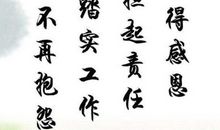 得感恩
担起责任
踏实工作
不再抱怨